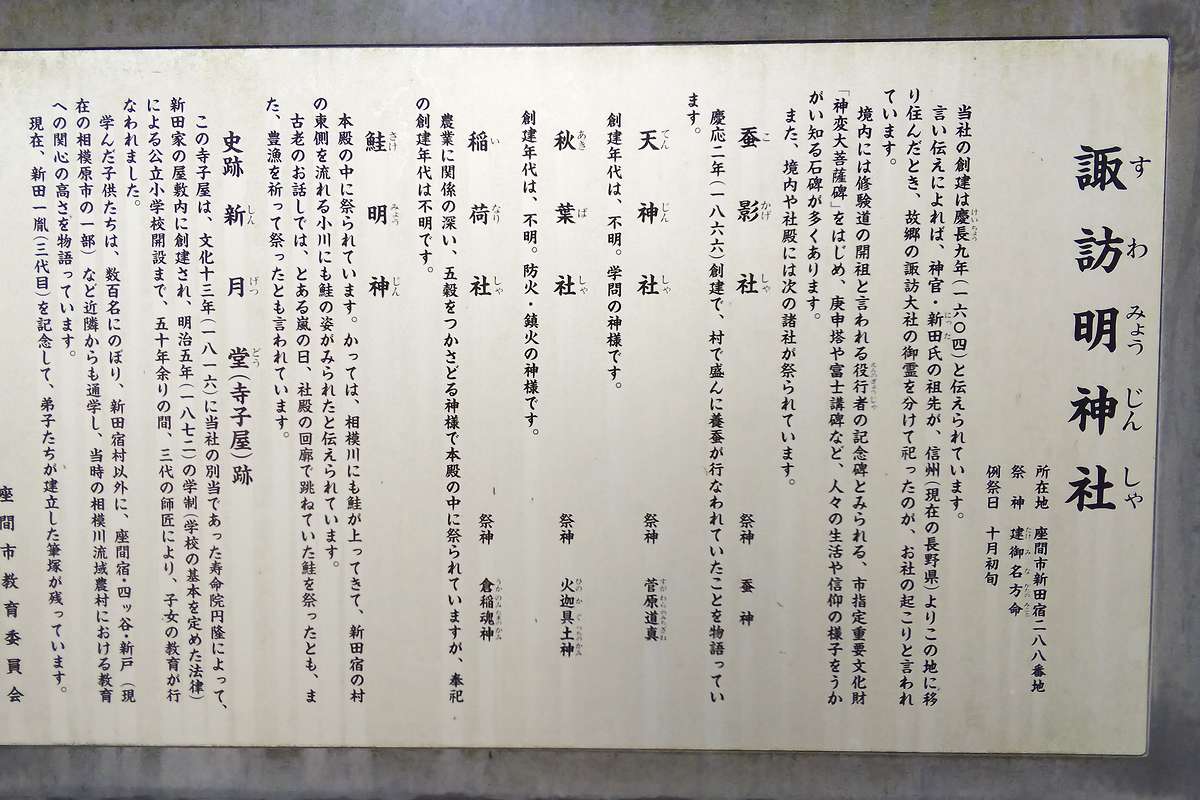 諏訪明神社
所在地　座間市新田宿二八八番地
祭神　建御名方命
例祭日　十月初旬
当社の創建は慶長九年(一六〇四)と伝えられています。
言い伝えによれば、神官・新田氏の祖先が、信州(現在の長野県)よりこの地に移
り住んだとき、故郷の諏訪大社の御霊を分けて祀ったのが、お社の起こりと言われ
ています。
境内には修験道の開祖と言われる役行者の記念碑とみられる、市指定重要文化財
「神変大菩薩碑」をはじめ、庚申塔や富士講碑など、人々の生活や信仰の様子をうか
がい知る石碑が多くあります。
また、境内や社殿には次の諸社が祭られています。
蚕影社　祭神　蚕神
慶応二年(一八六六)創建で、村で盛んに養蚕が行なわれていたことを物語ってい
ます。
天神社　祭神　菅原道真
創建年代は、不明。学問の神様です。
秋葉社　祭神　火迦具土神
創建年代は、不明。防火・鎮火の神様です。
稲荷社　祭神　倉稲魂神
農業に関係の深い、五穀をつかさどる神様で本殿の中に祭られていますが、奉祀
の創建年代は不明です。
鮭明神
本殿の中に祭られています。かっては、相模川にも鮭が上ってきて、新田宿の村
の東側を流れる小川にも鮭の姿がみられたと伝えられています。
古老のお話しでは、とある嵐の日、社殿の回廊で跳ねていた鮭を祭ったとも、ま
た、豊漁を祈って祭ったとも言われています。
史跡　新月堂(寺子屋)跡
この寺子屋は、文化十三年(一八一六)に当社の別当であった寿命院円隆によって、
新田家の屋敷内に創建され、明治五年(一八七二)の学制(学校の基本を定めた法律)
による公立小学校開設まで、五十年余りの間、三代の師匠により、子女の教育が行
なわれました。
学んだ子供たちは、数百名にのぼり、新田宿村以外に、座間宿・四ッ谷・新戸(現
在の相模原市の一部)など近隣からも通学し、当時の相模川流域農村における教育
への関心の高さを物語っています。
現在、新田一胤(三代目)を記念して、弟子たちが建立した筆塚が残っています。
座間市教育委員会